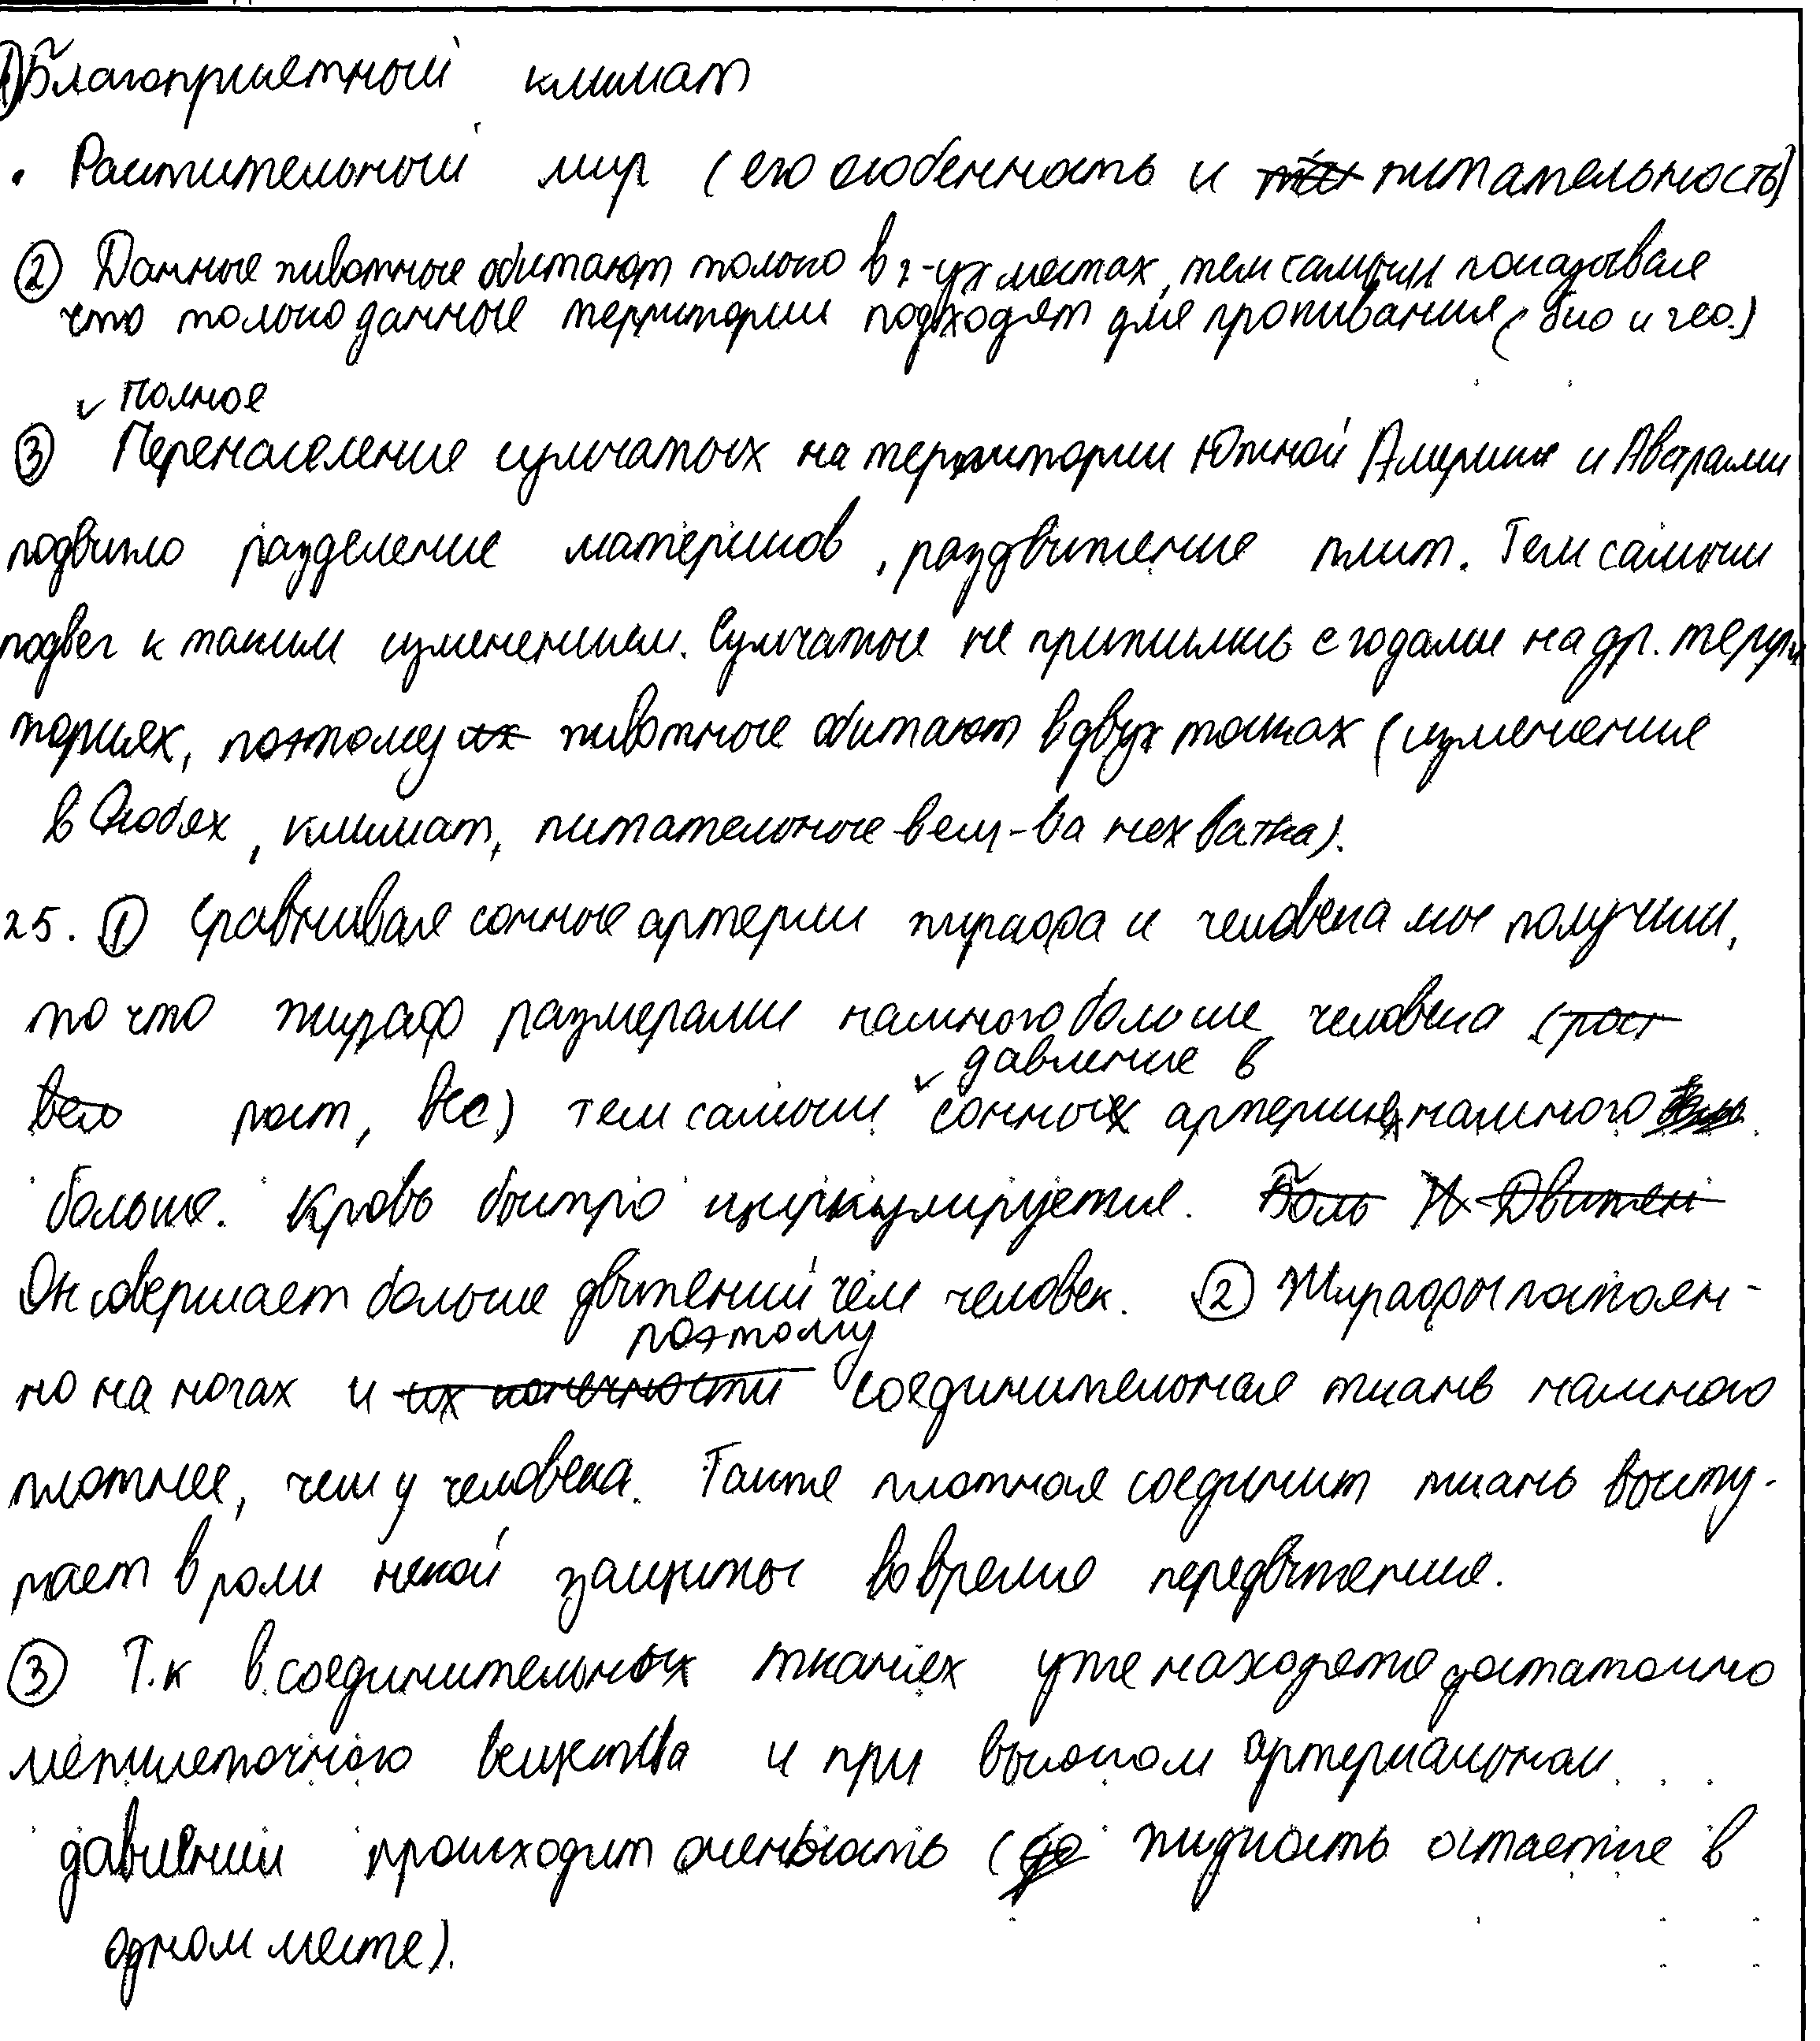 1) Благоприятный климат
• Растительный мир (его особенность и питательность)
② Данные животные обитают только в 2-ух местах, тем самым показывая
что только данные территории подходят для проживания (био и гео.)
✓ полное
③ Перенаселение сумчатых на территории Южной Америки и Австралии
подвигло разделение материков, раздвижение плит. Тем самым
подвег к таким изменениям. Сумчатые не прижились с годами на др. терри
ториях, поэтому их животные обитают в двух точках (изменение
в особях, климат, питательные вещ-ва нехватка).
25. ① Сравнивая сонные артерии жирафа и человека мы получим,
то что жираф размерами намного больше человека (рост
✓ давление в
рост, вес) тем самым сонных артериях намного
больше. Кровь быстро циркулируется. Боль И Движен
Он совершает больше движений чем человек. ② Жирафы постоян-
поэтому
но на ногах и их конечности соединительная ткань намного
плотнее, чем у человека. Также плотная соединит ткань высту-
пает в роли некой защиты во время передвижения.
③ Т.к в соединительных тканях уже находятся достаточно
межклеточного вещества и при высоком артериальном
давлении происходит оченьчасть ( жидкость остается в
одном месте).